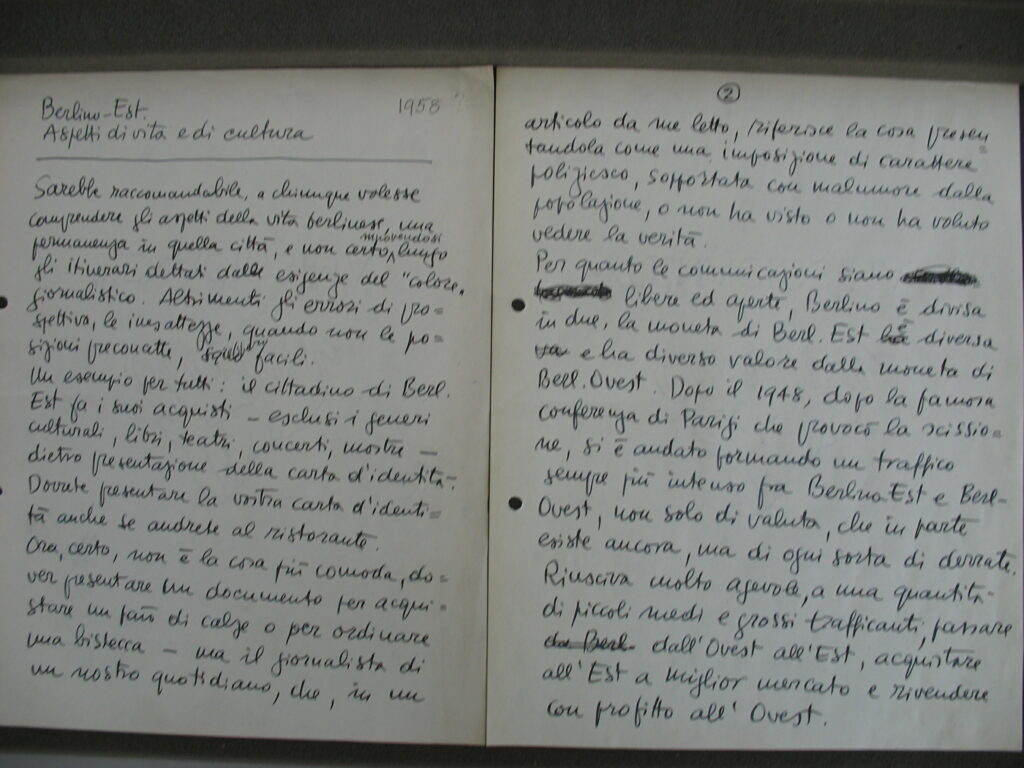 Berlino-Est.
1958
Aspetti di vita e di cultura
Sarebbe raccomandabile, a chiunque volesse
comprendere gli aspetti della vita berlinese, una
permanenza in quella città, e non certo muovendosi lungo
gli itinerari dettati dalle esigenze del "colore"
giornalistico. Altrimenti gli errori di pro=
spettiva, le inesattezze, quando non le po=
sizioni preconcette, facili.
Un esempio per tutti: il cittadino di Berl.
Est fa i suoi acquisti – esclusi i generi
culturali, libri, teatri, concerti, mostre –
dietro presentazione della carta d'identità.
Dovrete presentare la vostra carta d'identi=
tà anche se andrete al ristorante.
Ora, certo, non è la cosa più comoda, do=
ver presentare un documento per acqui=
stare un paio di calze o per ordinare
una bistecca – ma il giornalista di
un nostro quotidiano, che, in un
2
articolo da me letto, riferisce la cosa presen=
tandola come una imposizione di carattere
poliziesco, sopportata con malumore dalla
popolazione, o non ha visto o non ha voluto
vedere la verità.
Per quanto le comunicazioni siano
libere ed aperte, Berlino è divisa
in due, la moneta di Berl. Est è diversa
e ha diverso valore dalla moneta di
Berl. Ovest. Dopo il 1948, dopo la famosa
conferenza di Parigi che provocò la scissio=
ne, si è andato formando un traffico
sempre più intenso fra Berlino-Est e Berl-
Ovest, non solo di valuta, che in parte
esiste ancora, ma di ogni sorta di derrate.
Riusciva molto agevole, a una quantità
di piccoli medi e grossi trafficanti, passare
da Berl. dall'Ovest all'Est, acquistare
all'Est a miglior mercato e rivendere
con profitto all'Ovest.